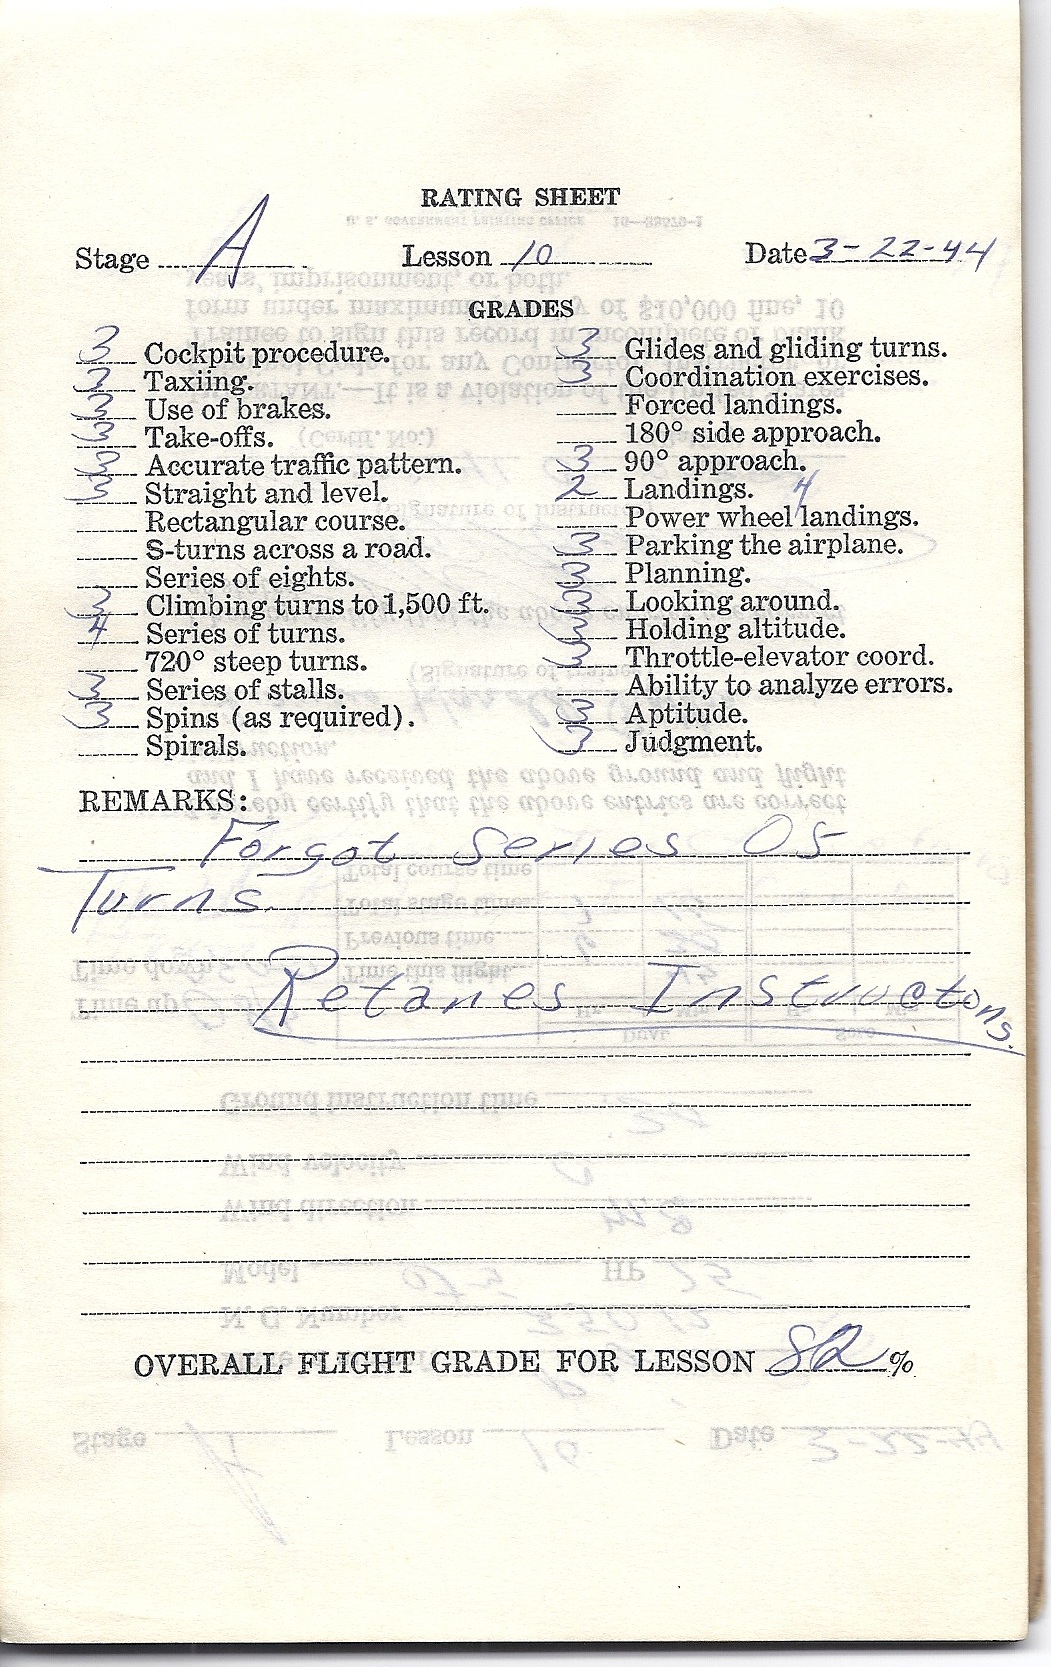 RATING SHEET
Stage A Lesson 10 Date 3-22-44
GRADES
3 Cockpit procedure.
3 Taxiing.
3 Use of brakes.
3 Take-offs.
3 Accurate traffic pattern.
3 Straight and level.
Rectangular course.
S-turns across a road.
Series of eights.
3 Climbing turns to 1,500 ft.
4 Series of turns.
720° steep turns.
3 Series of stalls.
3 Spins (as required).
Spirals.
3 Glides and gliding turns.
3 Coordination exercises.
Forced landings.
180° side approach.
3 90° approach.
2 Landings. 4
Power wheel landings.
3 Parking the airplane.
3 Planning.
3 Looking around.
3 Holding altitude.
3 Throttle-elevator coord.
Ability to analyze errors.
3 Aptitude.
3 Judgment.
REMARKS:
Forgot Series Of
Turns.
Retanes Instructions.
OVERALL FLIGHT GRADE FOR LESSON 82 %.